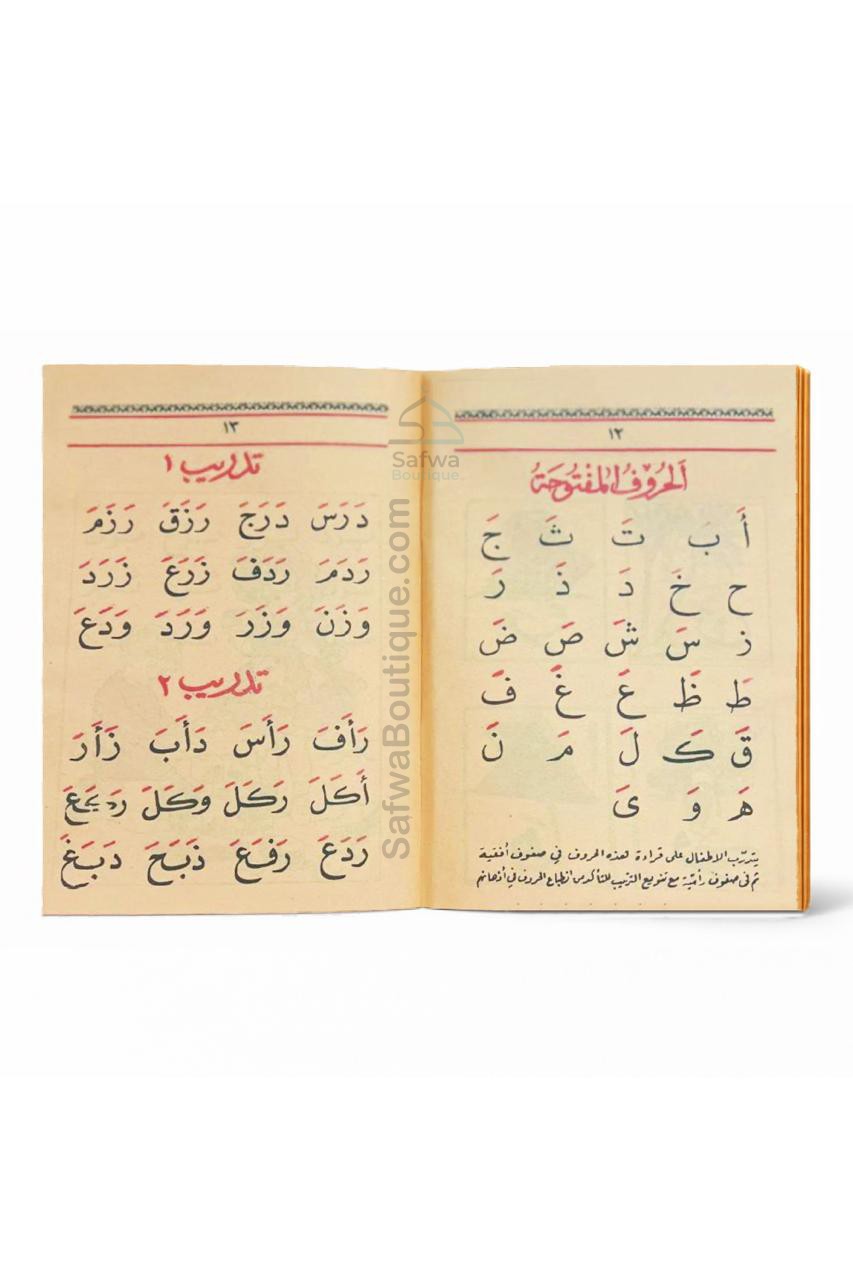 ١٢
الحُرُوْفُ المَفْتُوحَةُ
أَ بَ تَ ثَ جَ
حَ خَ دَ ذَ رَ
زَ سَ شَ صَ ضَ
طَ ظَ عَ غَ فَ
قَ كَ لَ مَ نَ
هَ وَ ىَ
يتدرّب الاطفال على قراءة هذه الحروف في صفوف أفقية
ثم في صفوف رأسيّة مع تنويع الترتيب للتأكد من انطباع الحروف في أذهانهم
١٣
تدريب ١
دَرَسَ دَرَجَ رَزَقَ رَزَمَ
رَدَمَ رَدَفَ زَرَعَ زَرَدَ
وَزَنَ وَزَرَ وَرَدَ وَدَعَ
تدريب ٢
رَأَفَ رَأَسَ دَأَبَ زَأَرَ
أَكَلَ رَكَلَ وَكَلَ
رَدَعَ رَفَعَ ذَبَحَ دَبَغَ
Safwa
Boutique
SafwaBoutique.com